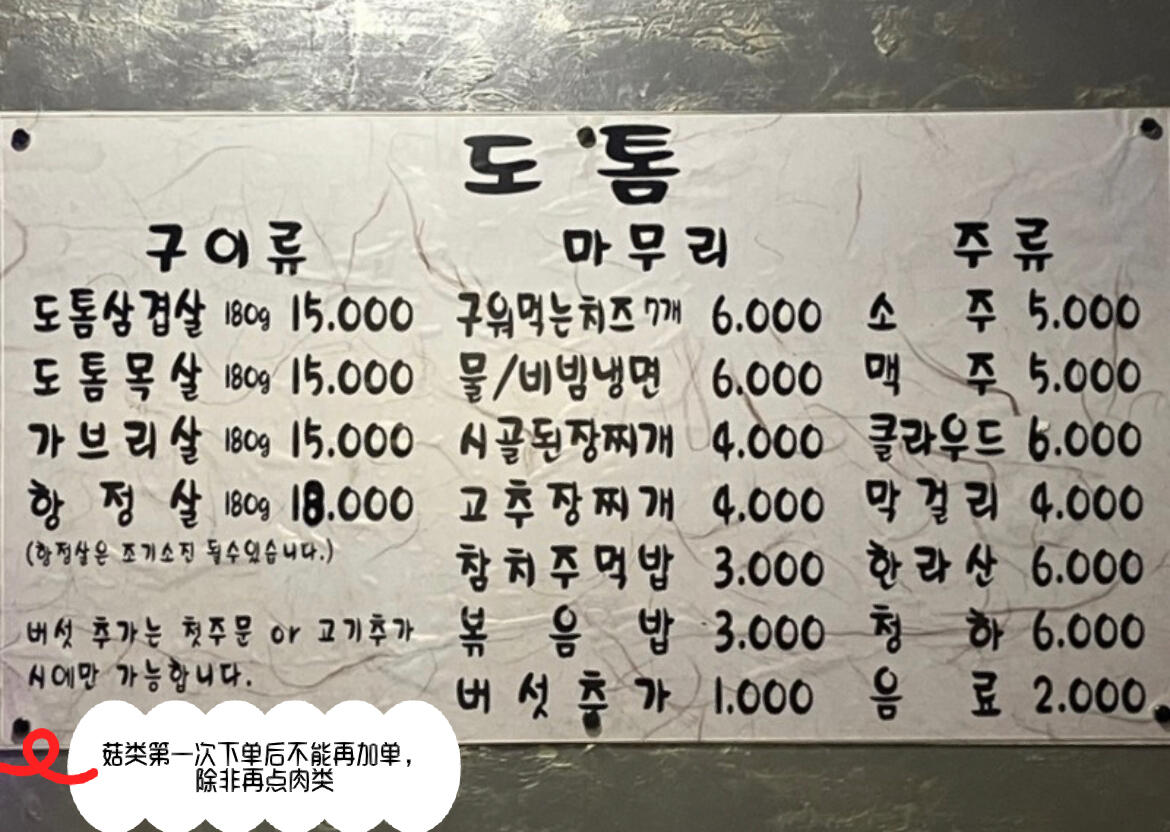 도톰
구이류
도톰삼겹살 180g 15.000
도톰목살 180g 15.000
가브리살 180g 15.000
항정살 180g 18.000
(항정살은 조기소진 될수있습니다.)
버섯 추가는 첫주문 or 고기추가
시에만 가능합니다.
마무리
구워먹는치즈 7개 6.000
물/비빔냉면 6.000
시골된장찌개 4.000
고추장찌개 4.000
참치주먹밥 3.000
볶음밥 3.000
버섯추가 1.000
주류
소주 5.000
맥주 5.000
클라우드 6.000
막걸리 4.000
한라산 6.000
청하 6.000
음료 2.000
菇类第一次下单后不能再加单，
除非再点肉类